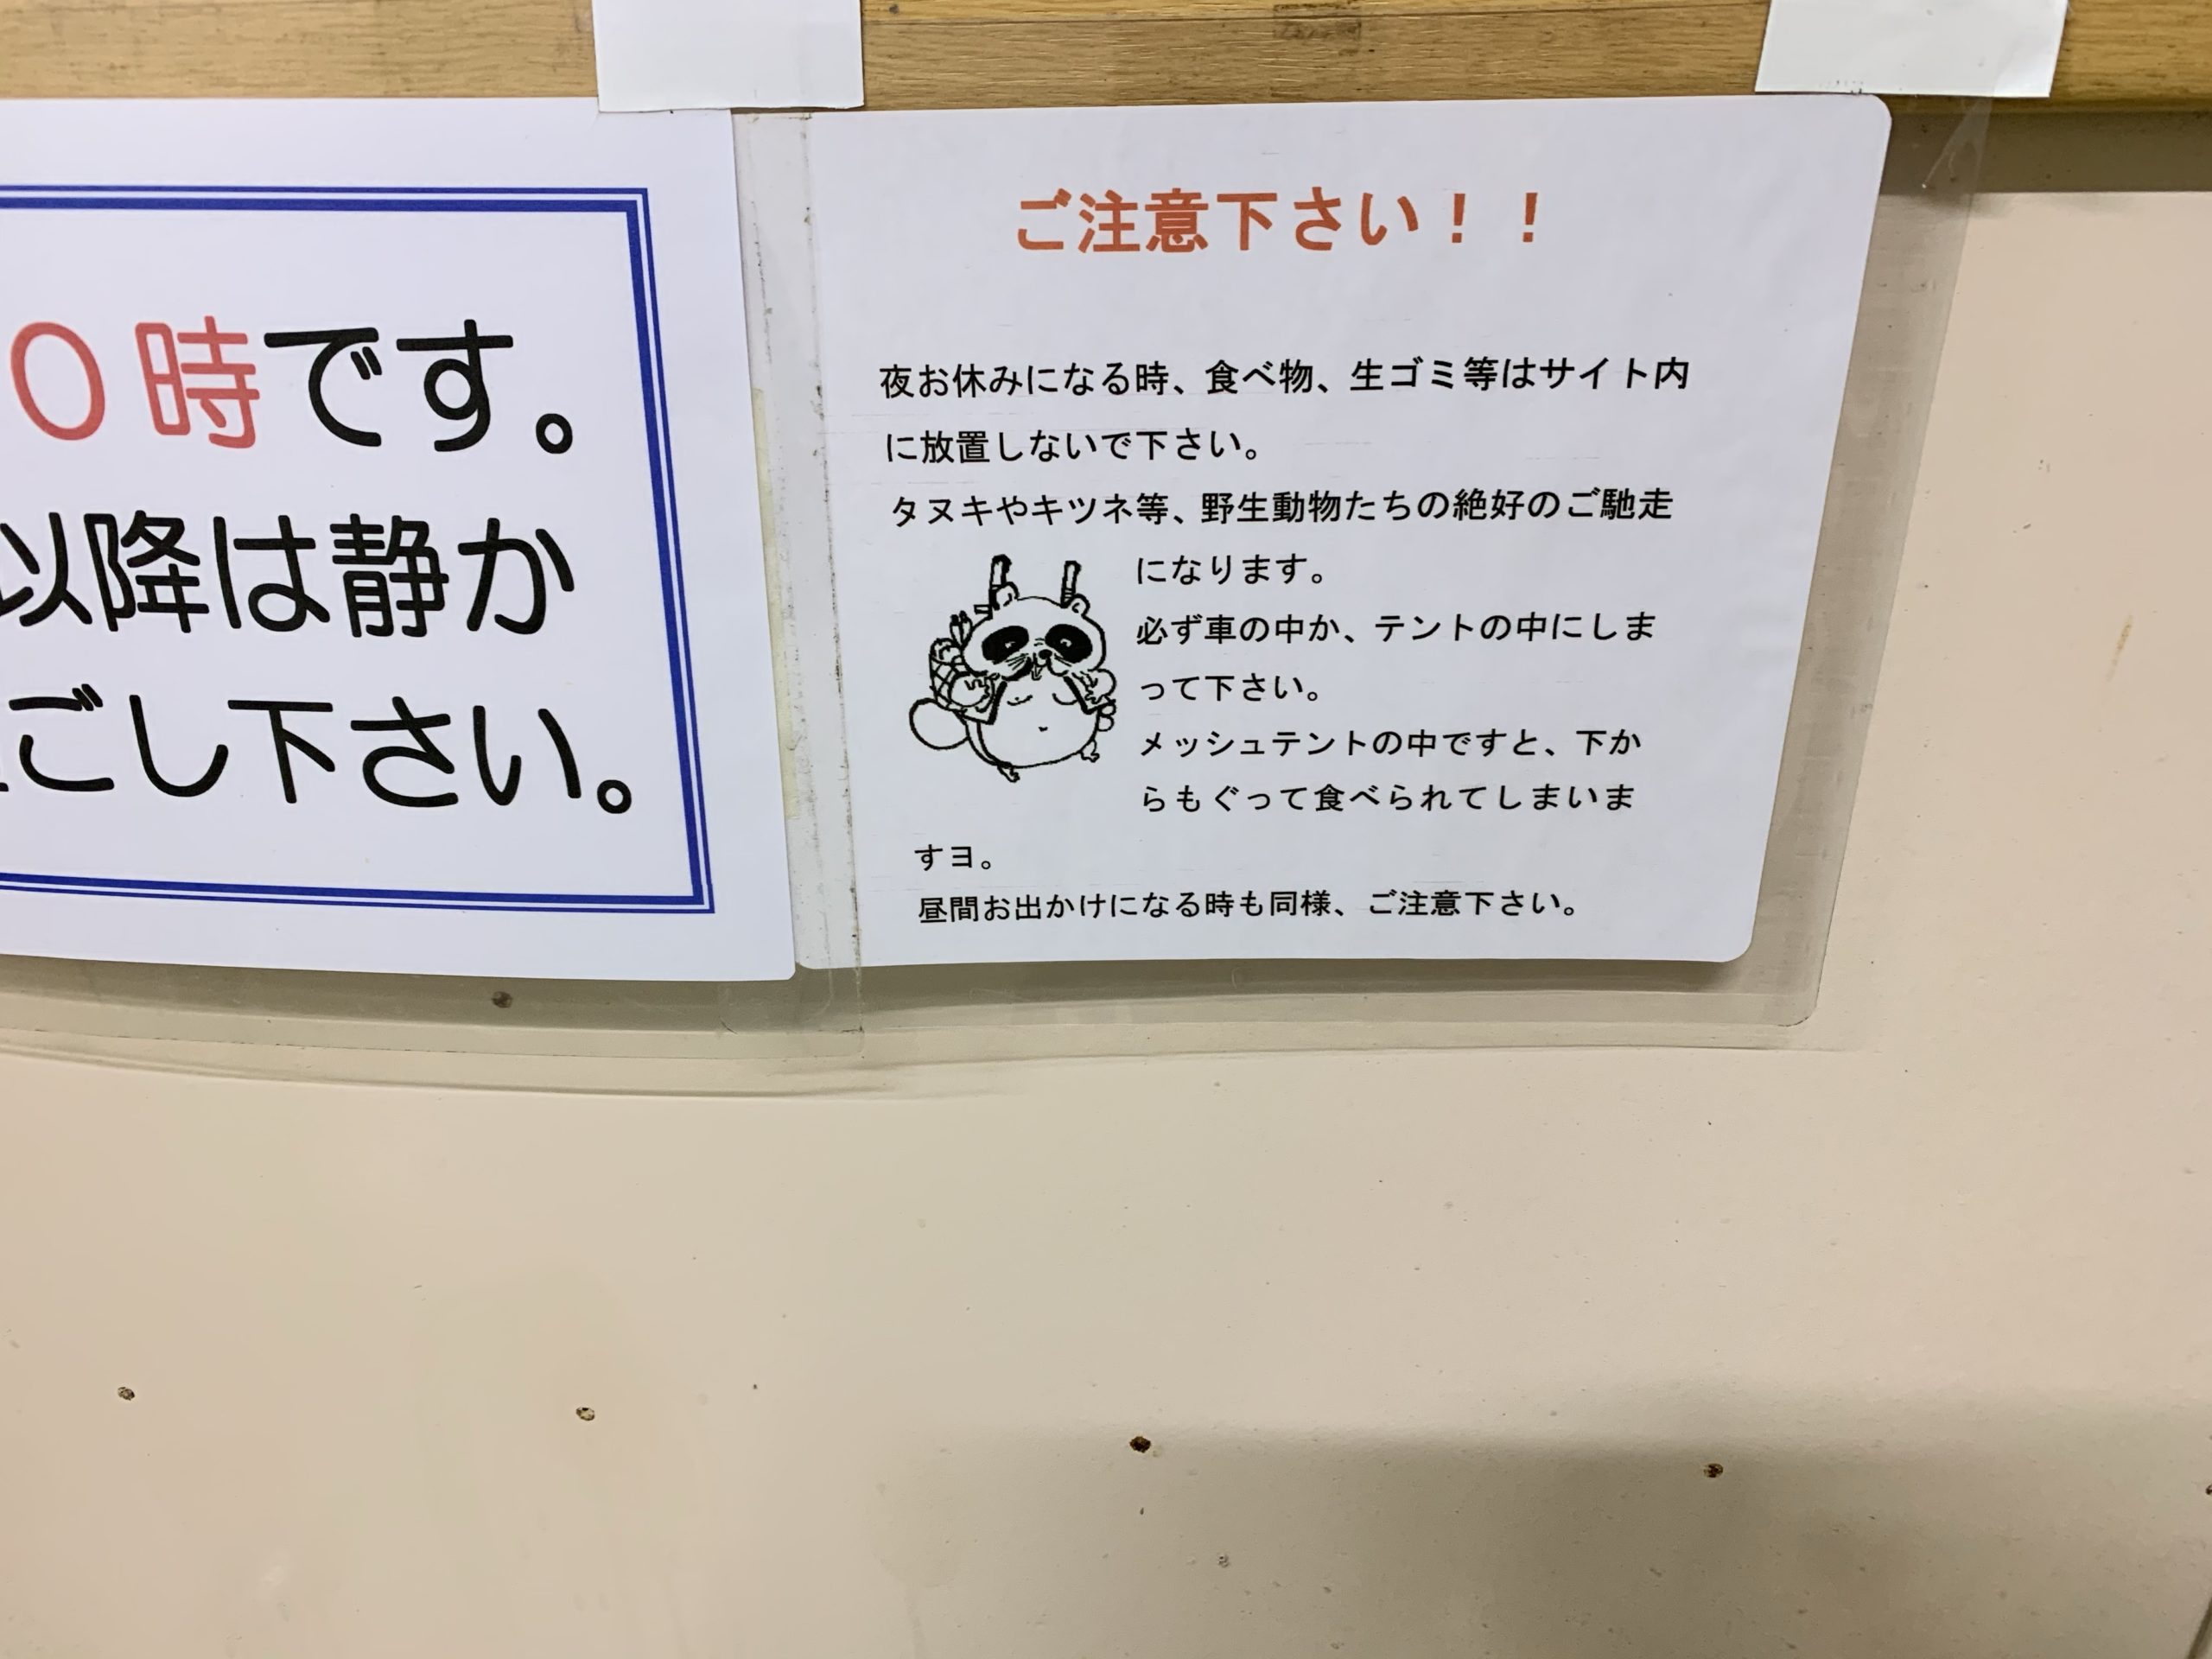 ０時です。
以降は静か
ごし下さい。
ご注意下さい！！
夜お休みになる時、食べ物、生ゴミ等はサイト内
に放置しないで下さい。
タヌキやキツネ等、野生動物たちの絶好のご馳走
になります。
必ず車の中か、テントの中にしま
って下さい。
メッシュテントの中ですと、下か
らもぐって食べられてしまいま
すヨ。
昼間お出かけになる時も同様、ご注意下さい。